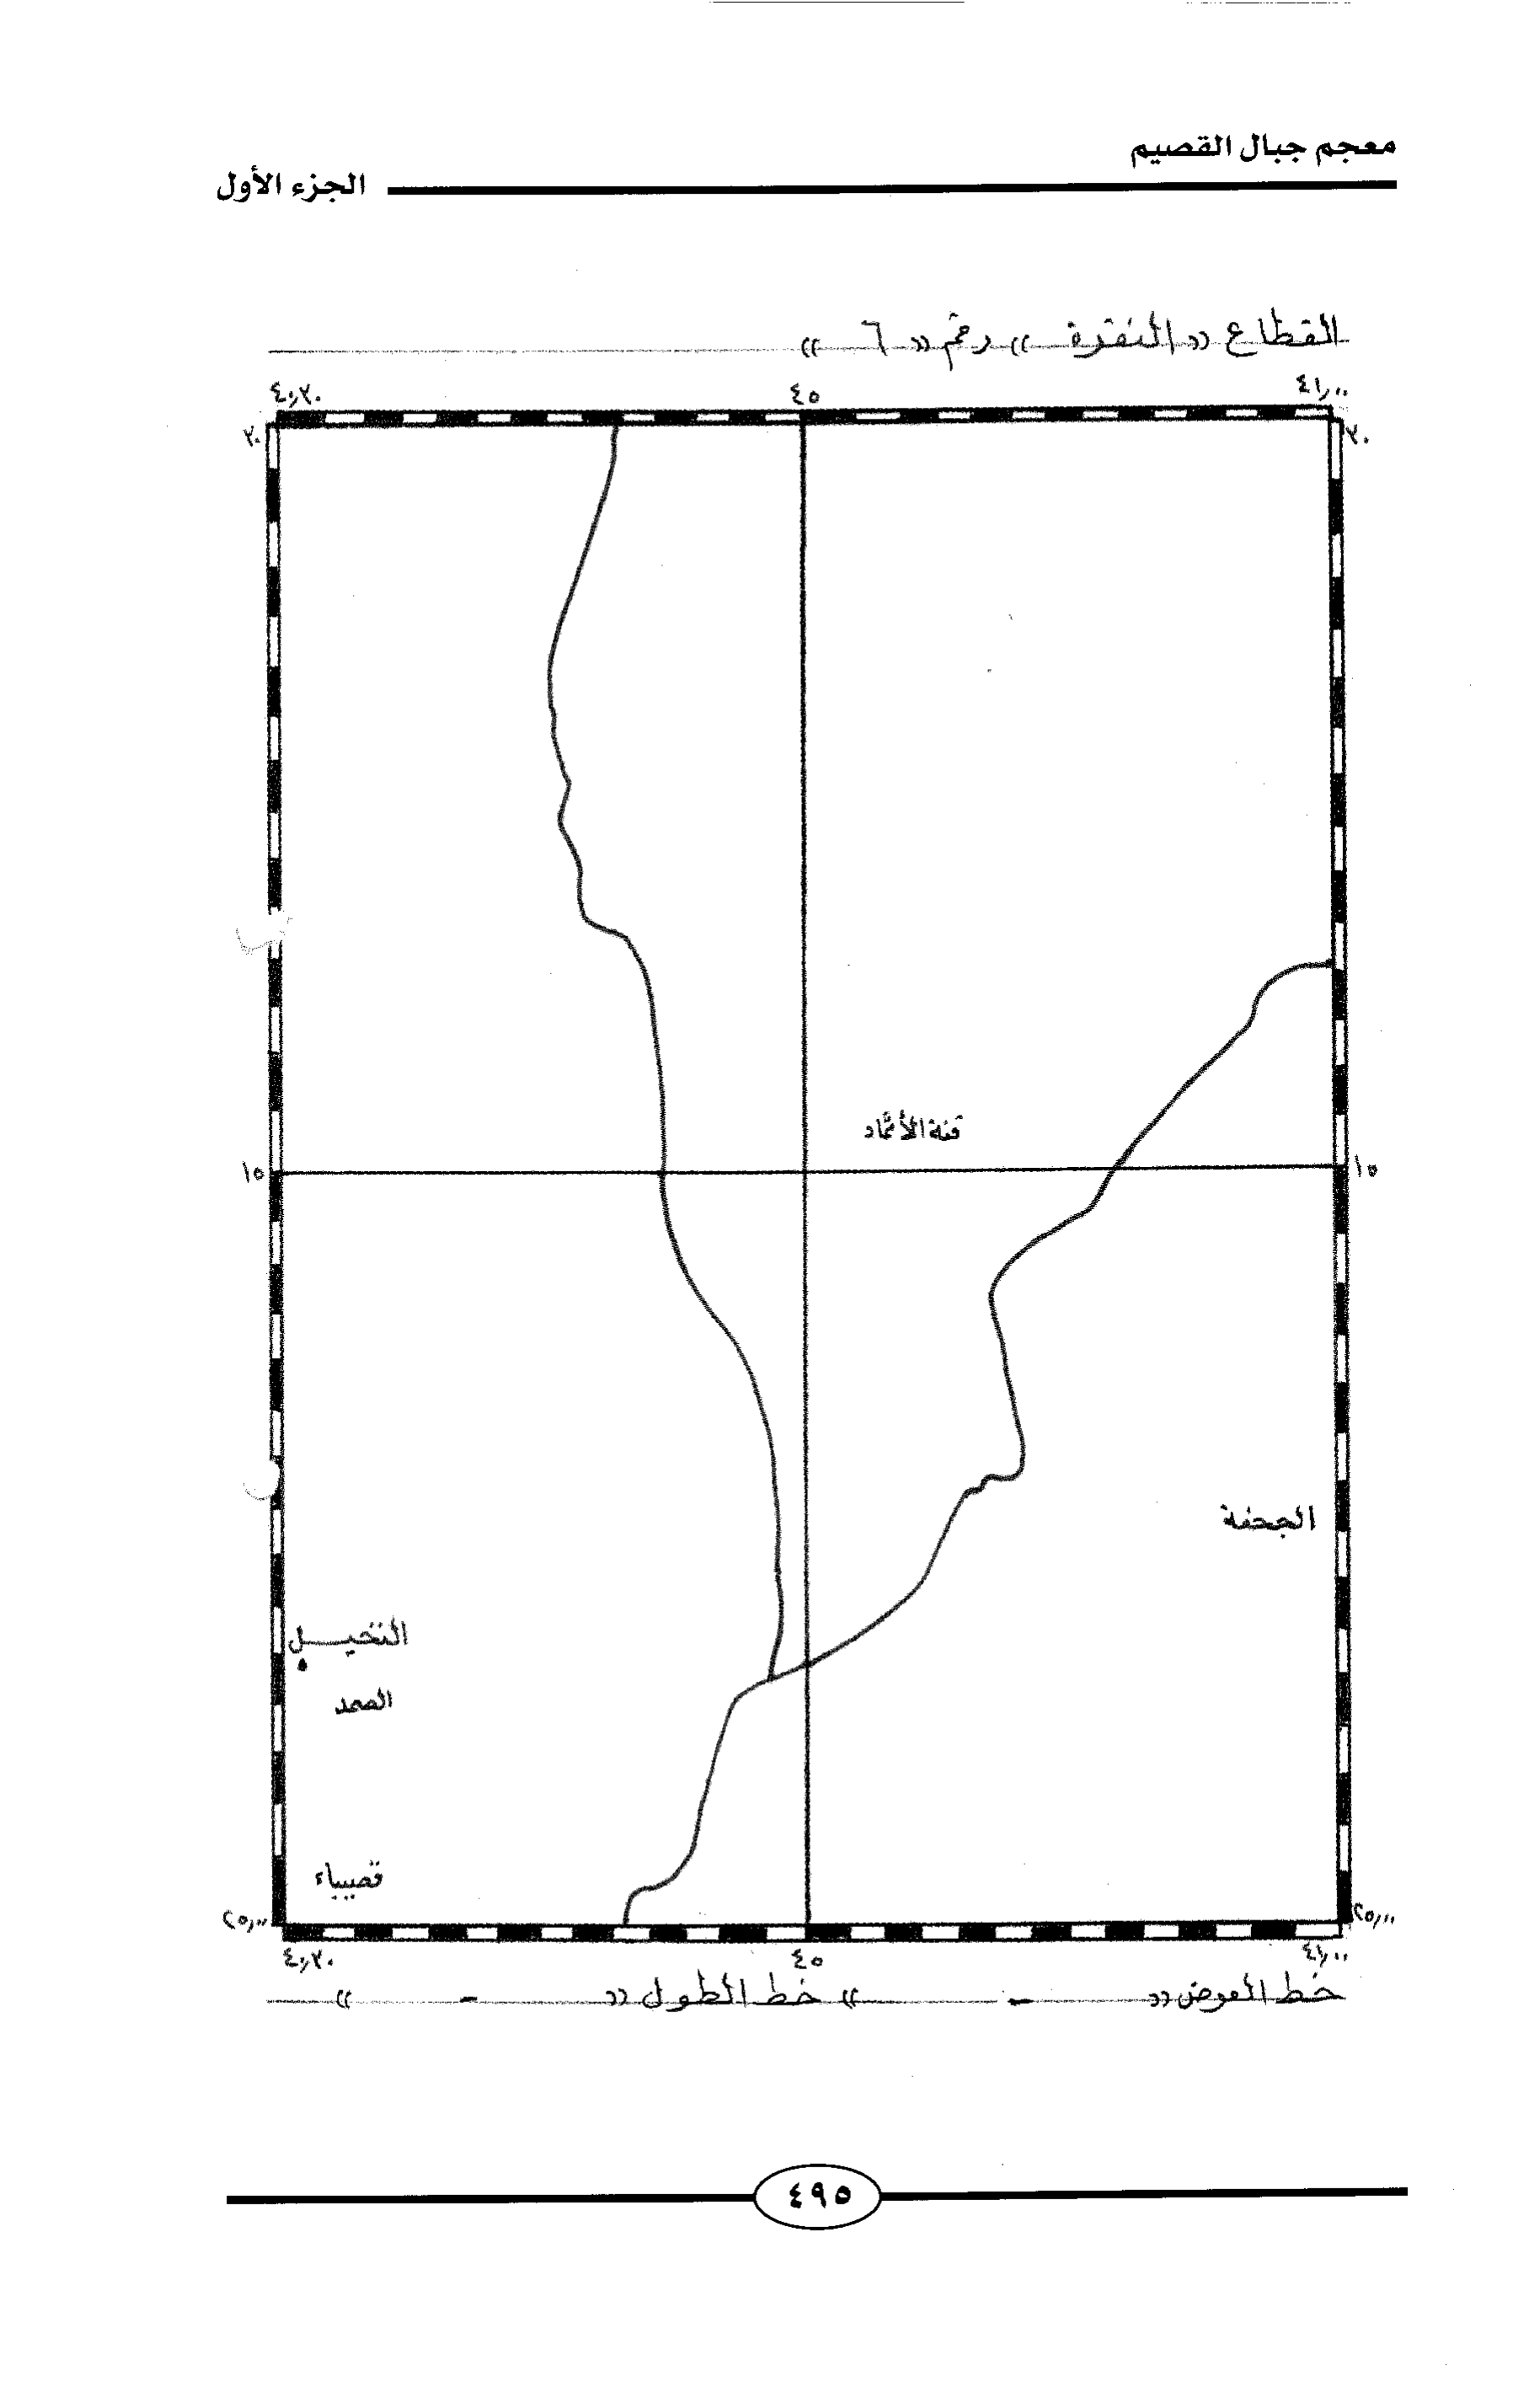 معجم جبال القصيم
الجزء الأول
القطاع « النقرة » رقم « ٦ »
٤٠٫٣٠ ٤٥ ٤١٫٠٠
٣٠ ٣٠
قنة الأثماد
١٥ ١٥
الجحفة
النخيل
الصمد
قصيباء
٢٥٫٠٠ ٢٥٫٠٠
٤٠٫٣٠ ٤٥ ٤١٫٠٠
خط العرض « - » خط الطول « - »
٤٩٥